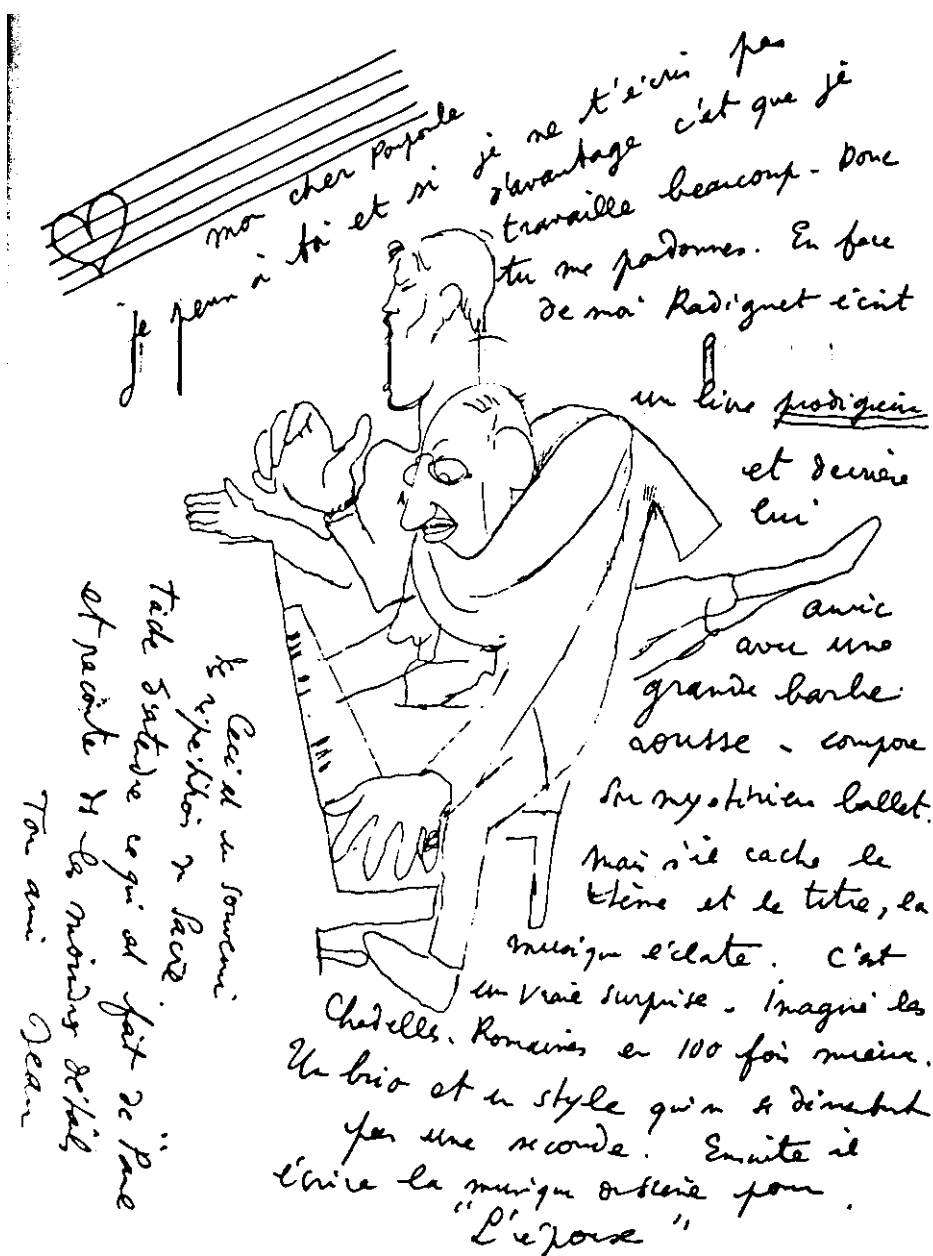 mon cher Poupoule
je pense à toi et si je ne t'écris pas
d'avantage c'est que je
travaille beaucoup - Donc
tu me pardonnes. En face
de moi Radiguet écrit
un livre prodigieux
et derrière
lui
auric
avec une
grande barbe
rousse - compose
son mystérieux ballet.
Mais s'il cache le
thème et le titre, la
musique éclate. C'est
une vraie surprise - Imagine les
Chadelles. Romaines en 100 fois mieux.
Un brio et un style qui ne se démentent
pas une seconde. Ensuite il
écrira la musique de scène pour
"L'épouse"
Ceci est un souvenir
des répétitions du Sacre.
Tâche d'atendre ce qui est fait de
et raconte moindres détails
Ton ami Jean